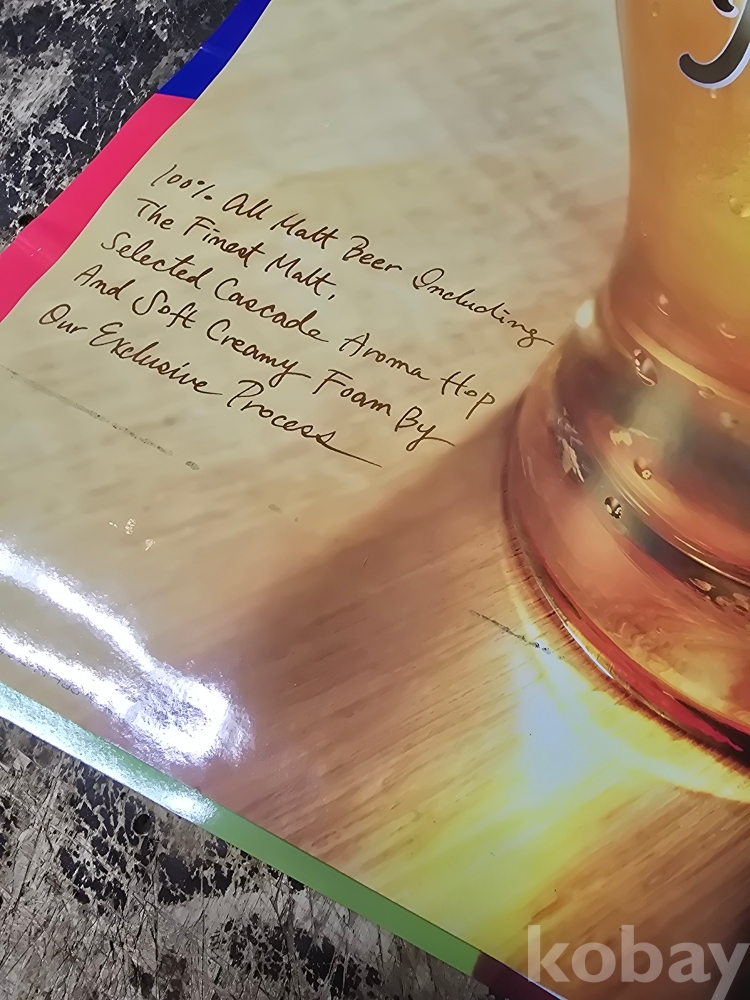 100% All Malt Beer Including
The Finest Malt,
Selected Cascade Aroma Hop
And Soft Creamy Foam By
Our Exclusive Process
kobay